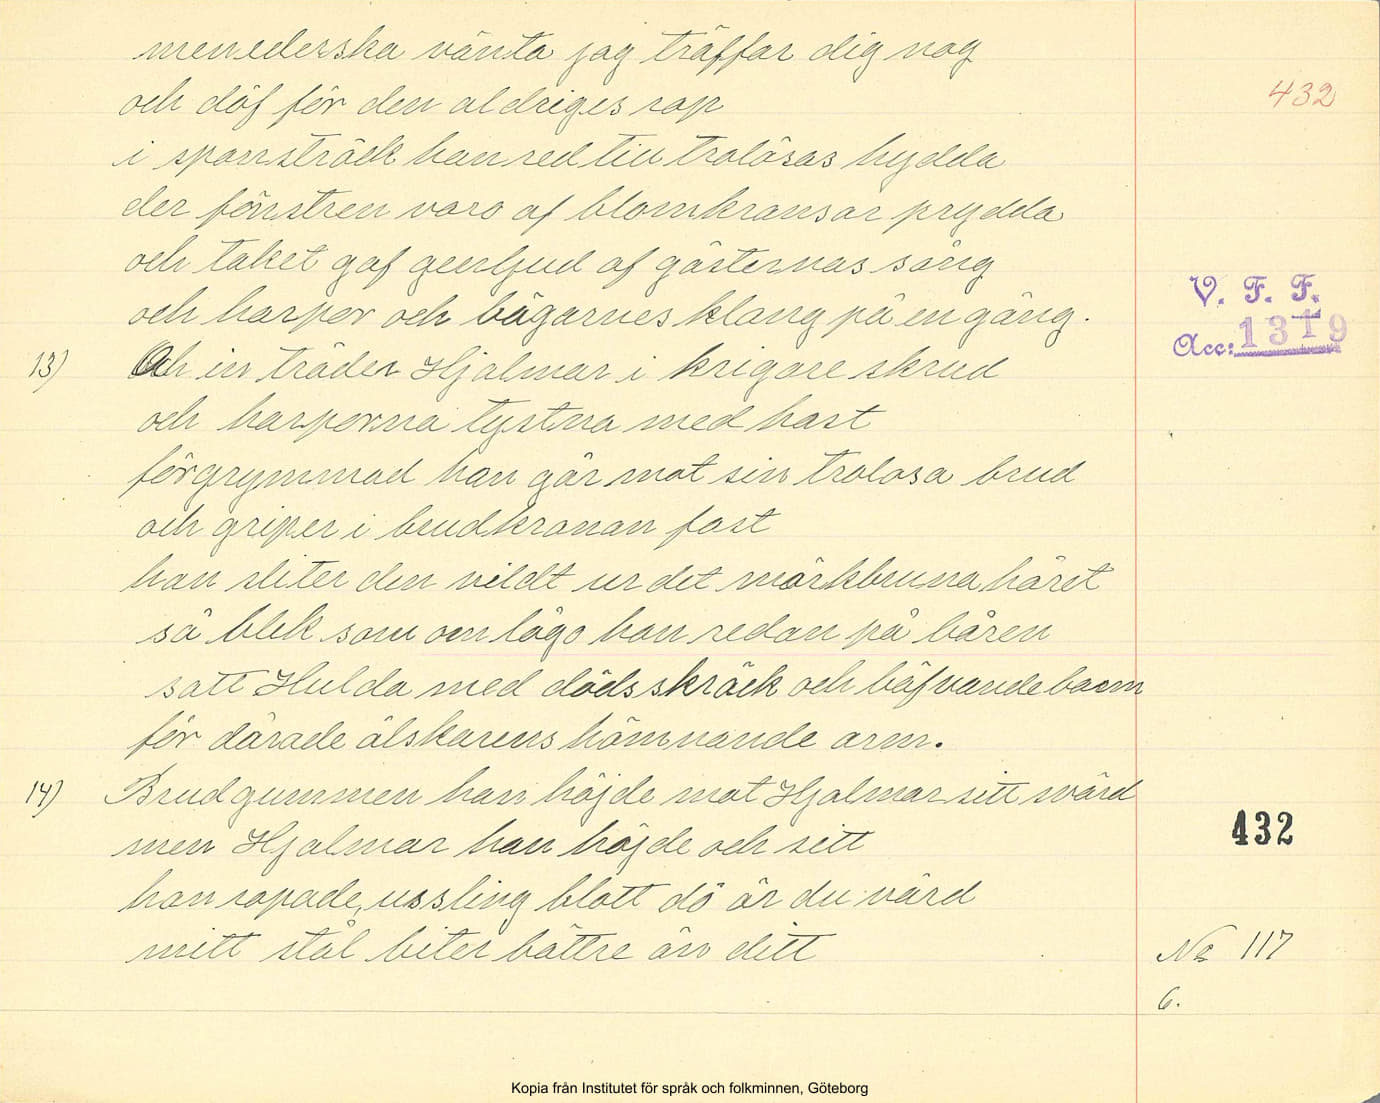 menederska vänta jag träffar dig nog
och döf för den aldriges rop
432
i sporrsträck han red till trolösas hydda
der fönstren voro af blomkransar prydda
och taket gaf genljud af gästernas sång
och harpor och bägarnes klang på en gång.
V. F. F.
Acc: 1319
13) Och in träder Hjalmar i krigare skrud
och harporna tystna med hast
förgrymmad han går mot sin trolosa brud
och griper i brudkronan fast
han sliter den vildt ur det mörkbruna håret
så blek som om lågo hon redan på båren
satt Hulda med dödsskräck och bäfvande barm
för dårade älskarens hämnande arm.
14) Brudgummen han höjde mot Hjalmar sitt svärd
men Hjalmar han höjde och sitt
432
han ropade, ussling blott dö är du värd
mitt stål biter bättre än ditt
No 117
6.
Kopia från Institutet för språk och folkminnen, Göteborg